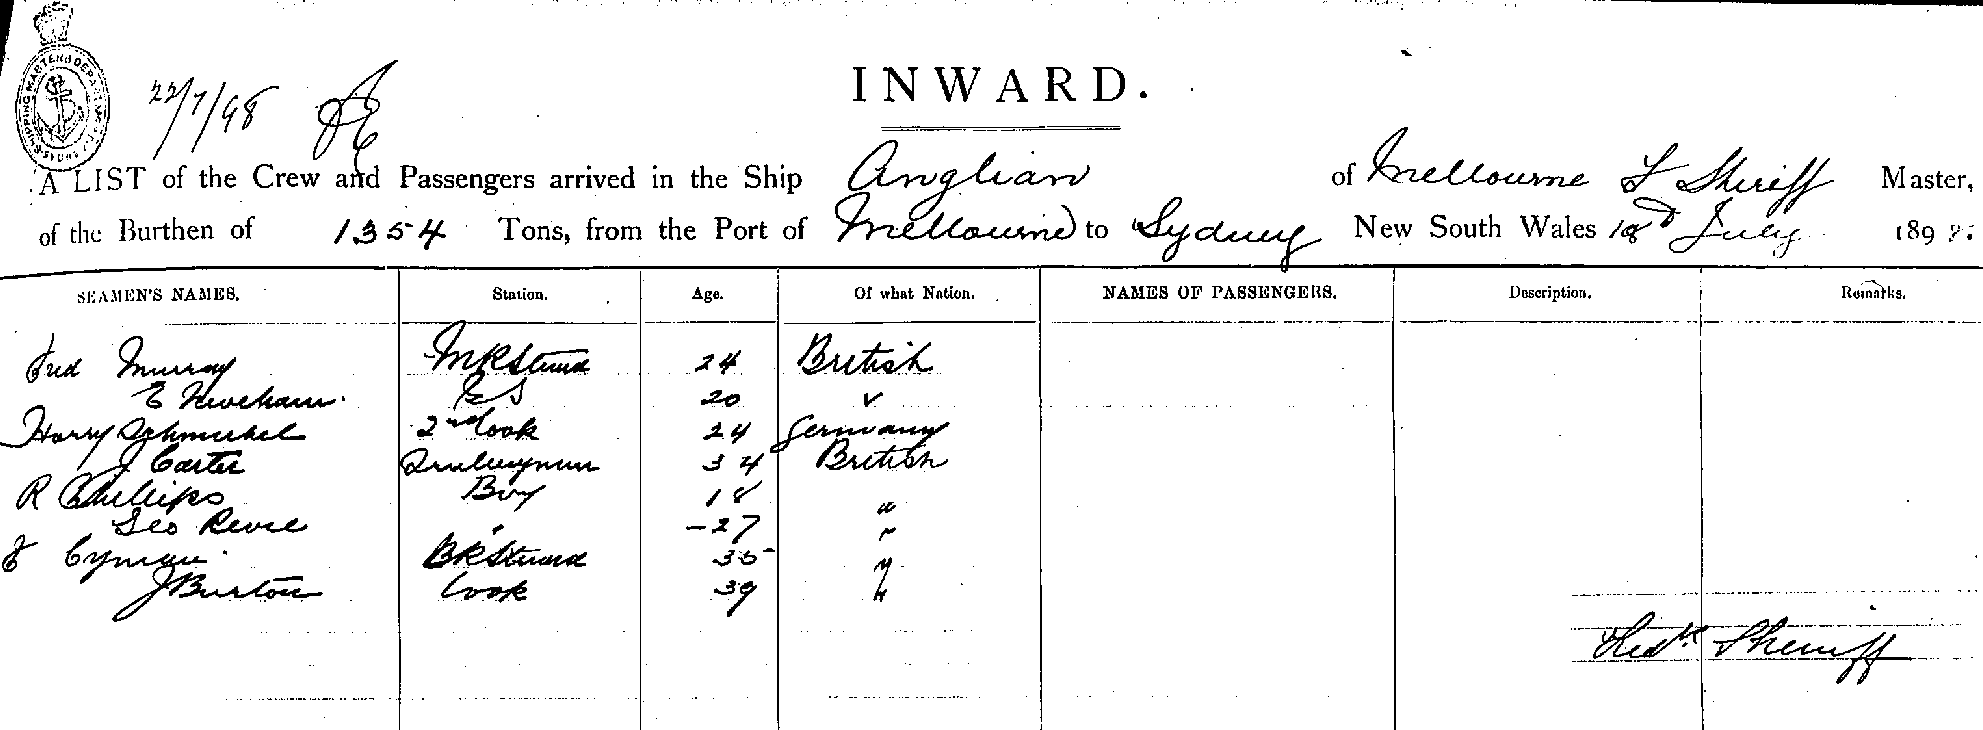 SHIPPING MASTERS DEPARTMENT SYDNEY
22/7/98
INWARD.
A LIST of the Crew and Passengers arrived in the Ship Anglian of Melbourne F Sheriff Master,
of the Burthen of 1354 Tons, from the Port of Melbourne to Sydney New South Wales 18 July 1898.
SEAMEN'S NAMES. Station. Age. Of what Nation. NAMES OF PASSENGERS. Description. Remarks.
Fred Murray 24 British
E Neweham 20 "
Harry 2nd Cook 24 Germany
J Carter 34 British
R Phillips Boy 18 "
Geo Revie " 27 "
35 "
J Burton Cook 39 "
Fredk Sheriff